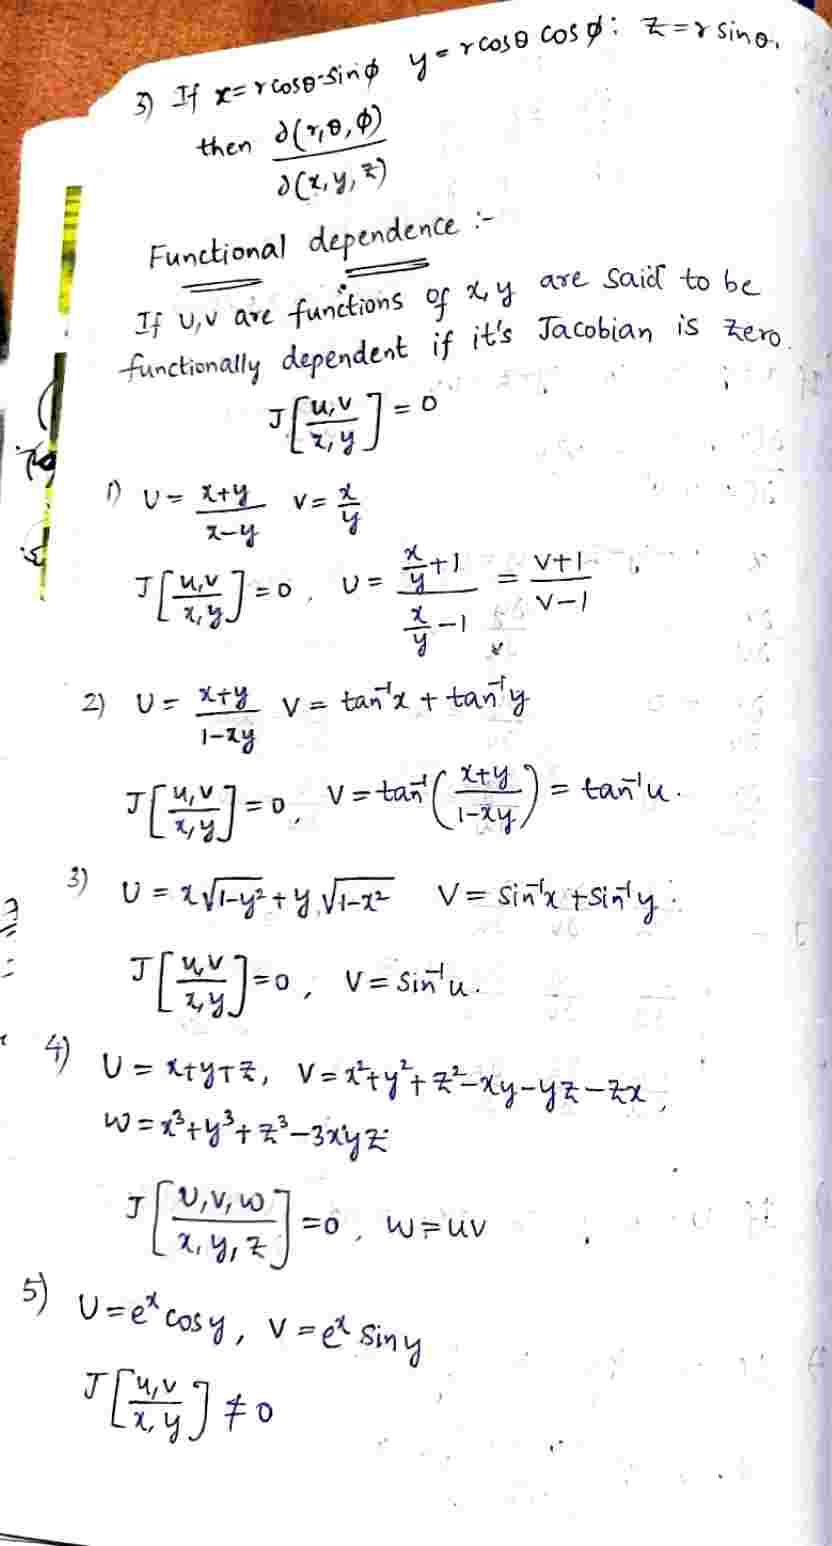 3) If x=rcosθ·sinϕ y=rcosθ cosϕ: z=rsinθ.
then ∂(r,θ,ϕ)/∂(x,y,z)
Functional dependence :-
If U,V are functions of x,y are said to be
functionally dependent if it's Jacobian is zero.
J[u,v/x,y]=0
1) U= x+y/x-y V= x/y
J[u,v/x,y]=0, U= (x/y+1)/(x/y-1) = V+1/V-1
2) U= x+y/1-xy V= tan⁻¹x + tan⁻¹y
J[u,v/x,y]=0, V=tan⁻¹(x+y/1-xy) = tan⁻¹u.
3) U = x√1-y² + y√1-x² V= Sin⁻¹x +Sin⁻¹y.
J[u,v/x,y]=0, V= Sin⁻¹u.
4) U = x+y+z, V=x²+y²+z²-xy-yz-zx,
W=x³+y³+z³-3xyz
J[U,V,W/x,y,z]=0, W=UV
5) U=eˣ cosy, V=eˣ Siny
J[u,v/x,y]≠0